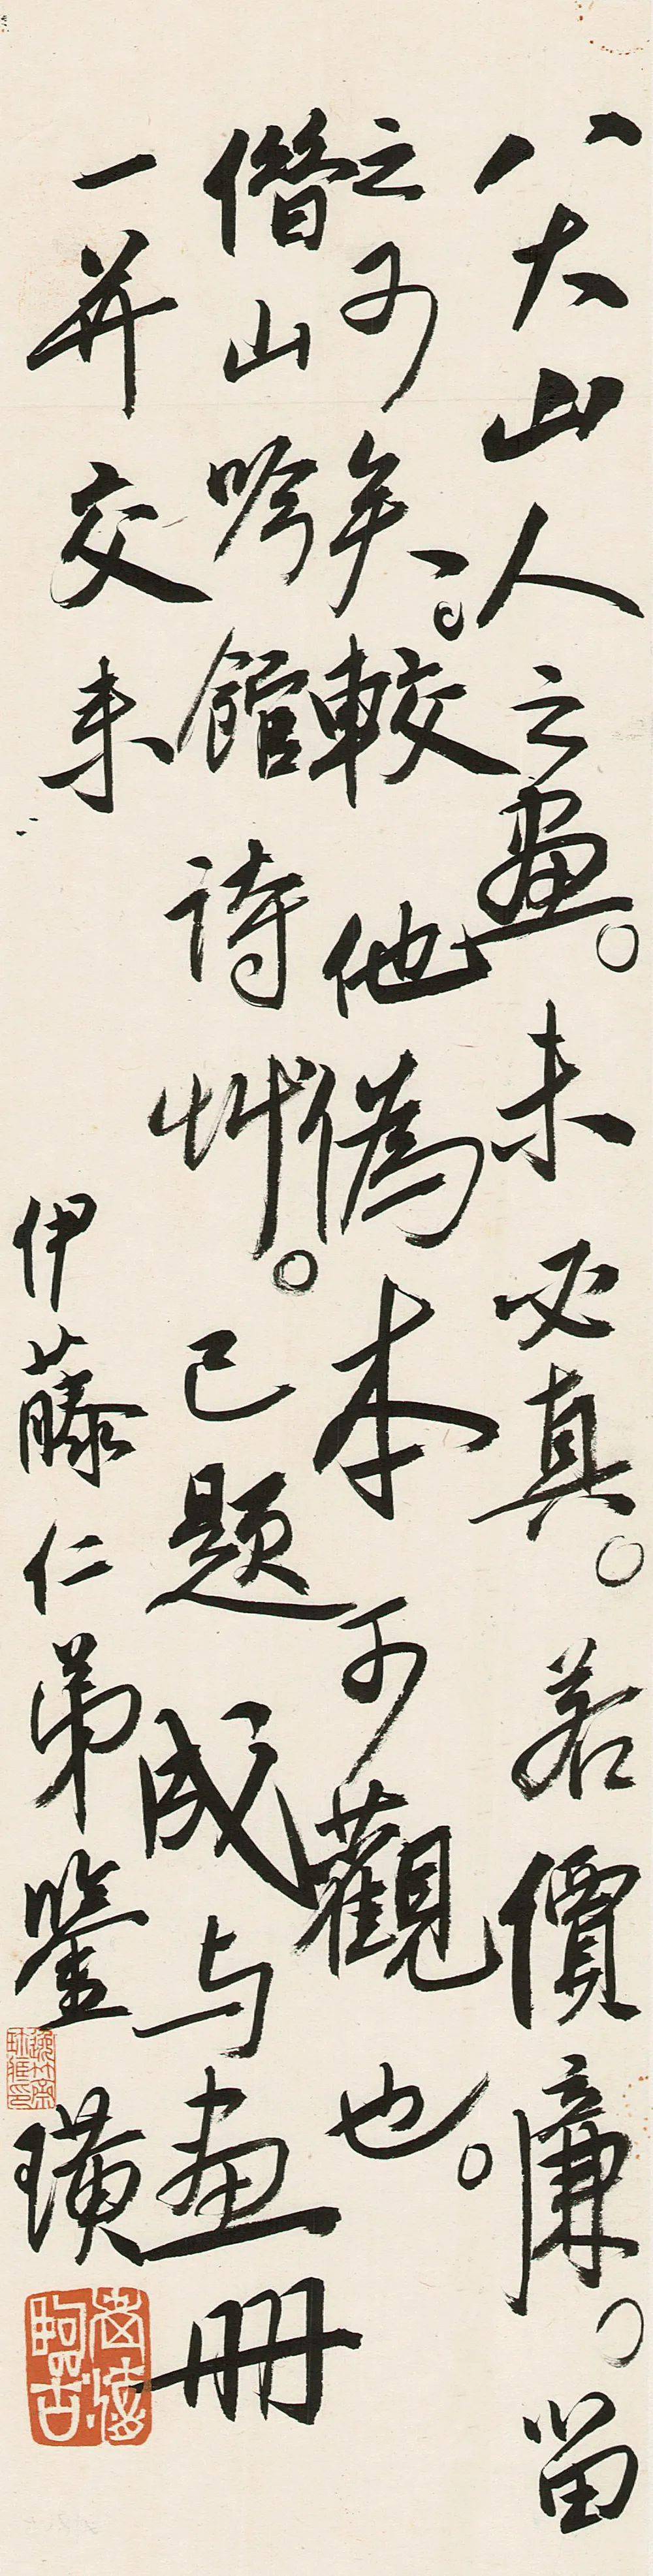 八大山人之畫。未必真。若價廉。留
之可矣。較他偽本可觀也。
借山吟館詩艸。已題成与畫冊
一并交來
伊藤仁弟鑒 璜